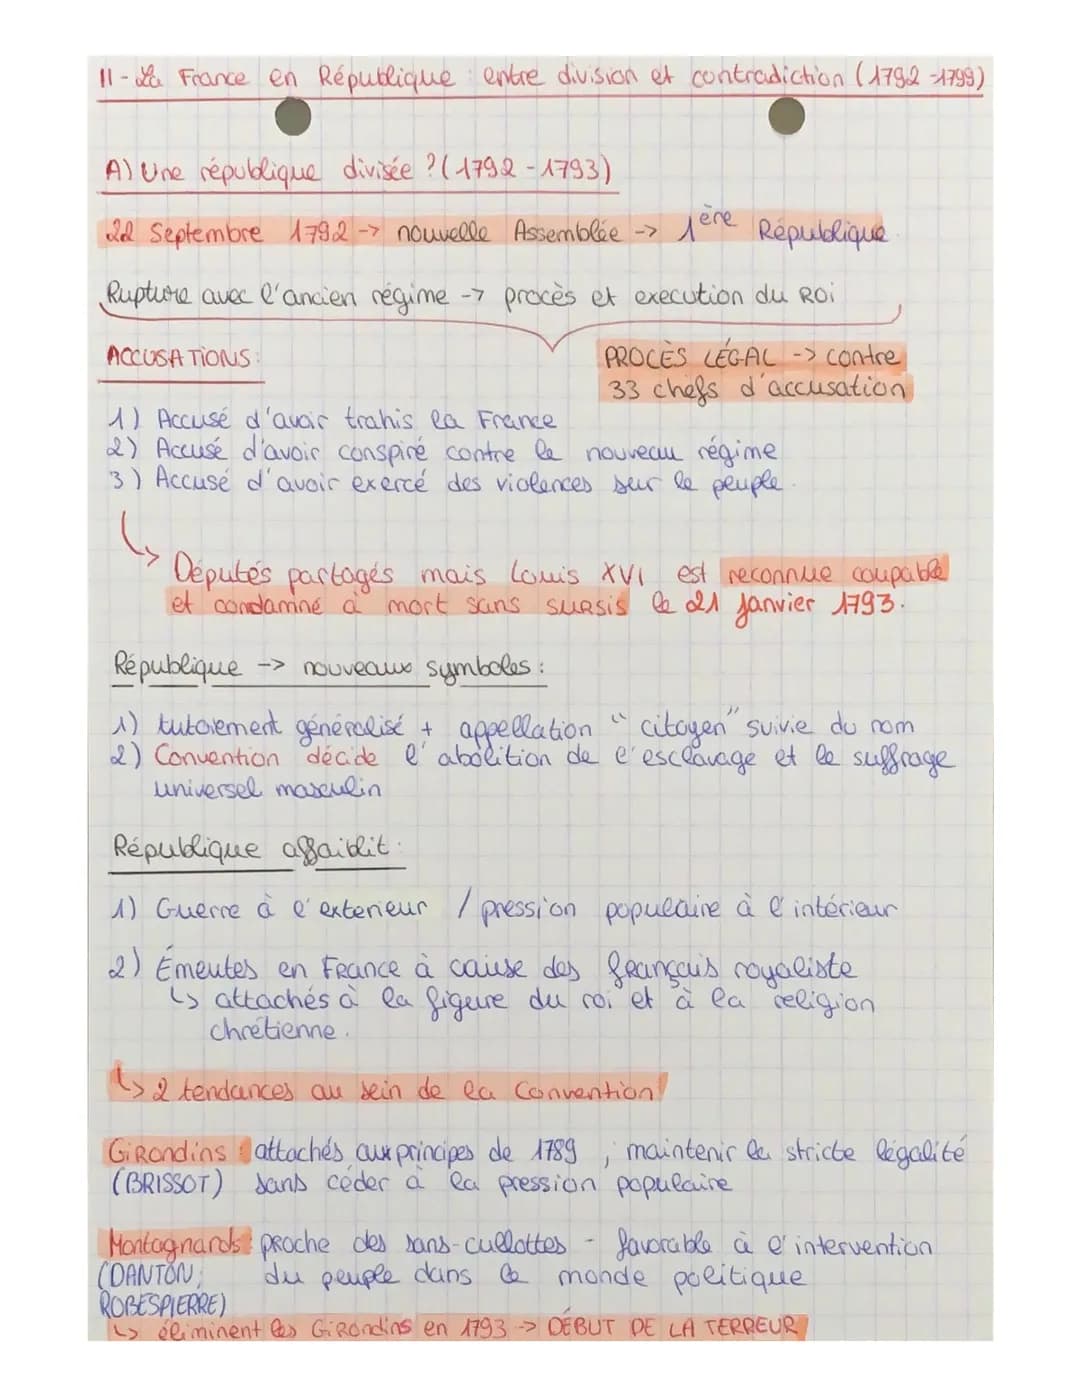 II - La France en République : entre division et contradiction (1792-1799)
A) Une république divisée ? (1792-1793)
22 Septembre 1792 -> nouvelle Assemblée -> 1ère République.
Rupture avec l'ancien régime -> procès et execution du ROI
ACCUSATIONS:
PROCÈS LÉGAL -> contre
33 chefs d'accusation
1) Accusé d'avoir trahis la France
2) Accusé d'avoir conspiré contre le nouveau régime
3) Accusé d'avoir exercé des violences sur le peuple.
↳ Députés partagés mais Louis XVI est reconnue coupable
et condamné à mort sans sursis le 21 janvier 1793.
République -> nouveaux symboles :
1) tutoiement généralisé + appellation "citoyen" suivie du nom
2) Convention décide l'abolition de l'esclavage et le suffrage
universel masculin
République affaiblit :
1) Guerre à l'exterieur / pression populaire à l'intérieur
2) Émeutes en France à cause des français royaliste
↳ attachés à la figure du roi et à la religion
chrétienne.
↳ 2 tendances au sein de la Convention
Girondins : attachés aux principes de 1789 ; maintenir la stricte légalité
(BRISSOT) sans céder à la pression populaire
Montagnards : proche des sans-cullottes - favorable à l'intervention
(DANTON; du peuple dans le monde politique
ROBESPIERRE)
↳ éliminent les Girondins en 1793 -> DÉBUT DE LA TERREUR